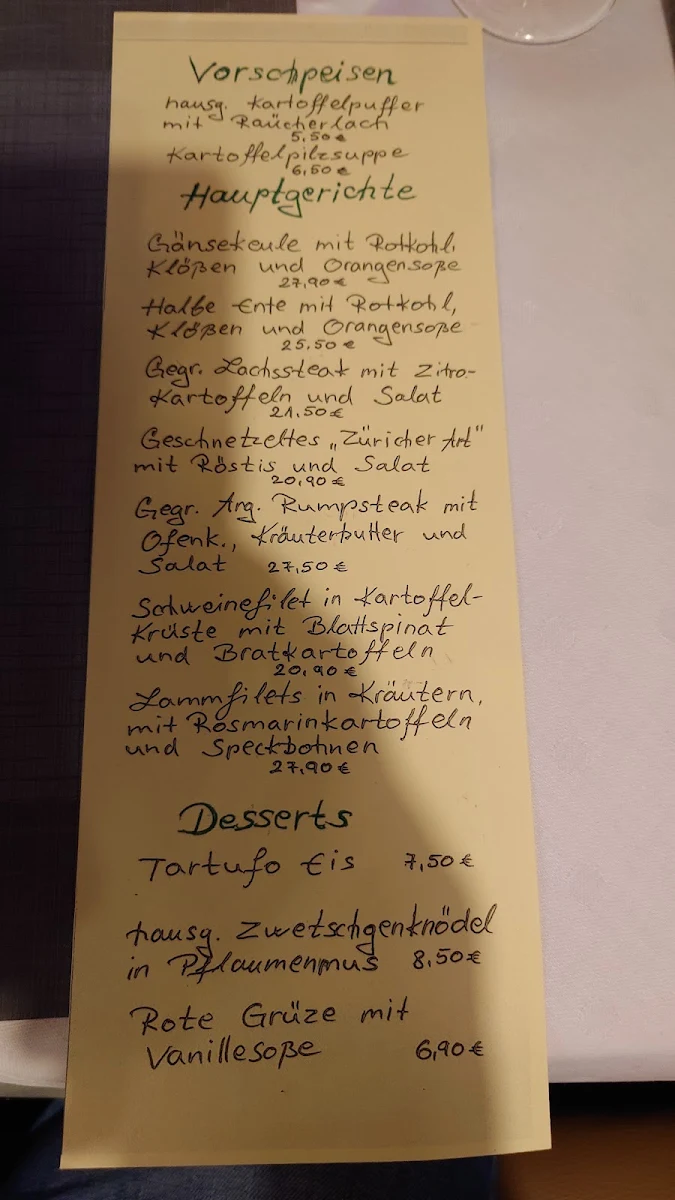 Vorschpeisen
hausg. Kartoffelpuffer
mit Raücherlach
5,50 €
Kartoffelpilzsuppe
6,50 €
Hauptgerichte
Gänsekeule mit Rotkohl,
Klößen und Orangensoße
27,90 €
Halbe Ente mit Rotkohl,
Klößen und Orangensoße
25,50 €
Gegr. Lachssteak mit Zitro-
Kartoffeln und Salat
21,50 €
Geschnetzeltes „Züricher Art"
mit Röstis und Salat
20,90 €
Gegr. Arg. Rumpsteak mit
Ofenk., Kräuterbutter und
Salat 27,50 €
Schweinefilet in Kartoffel-
Krüste mit Blattspinat
und Bratkartoffeln
20,90 €
Lammfilets in Kräutern,
mit Rosmarinkartoffeln
und Speckbohnen
27,90 €
Desserts
Tartufo Eis 7,50 €
hausg. Zwetschgenknödel
in Pflaumenmus 8,50 €
Rote Grüze mit
Vanillesoße 6,90 €